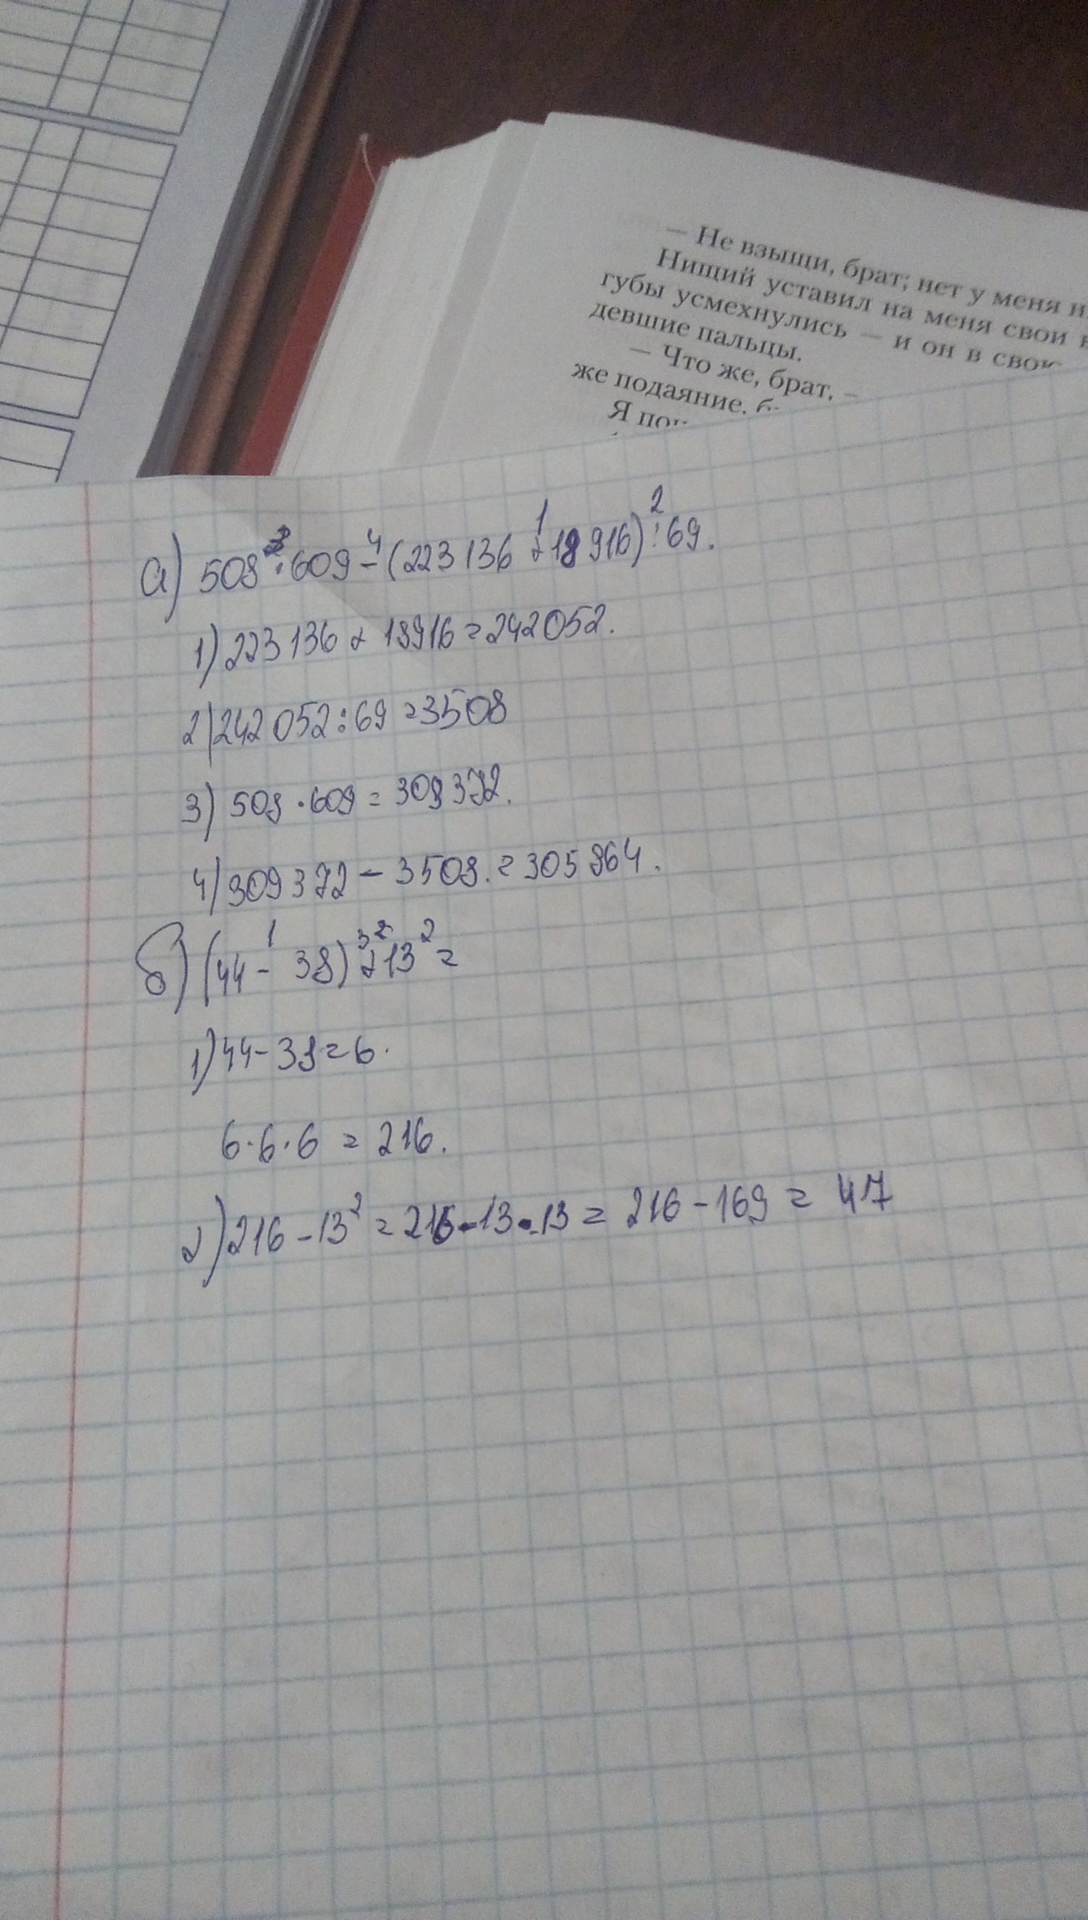 — Не взыщи, брат; нет у меня
Нищий уставил на меня свои
губы усмехнулись — и он в свою
девшие пальцы.
— Что же, брат, —
же подаяние,
Я
а) 508 · 609 - (223 136 + 18 916) : 69.
1) 223 136 + 18916 = 242052.
2) 242 052 : 69 = 3508
3) 508 · 609 = 309 372.
4) 309 372 - 3508. = 305 864.
б) (44 - 38)³ + 13² =
1) 44 - 38 = 6.
6 · 6 · 6 = 216.
2) 216 - 13² = 216 - 13 · 13 = 216 - 169 = 47